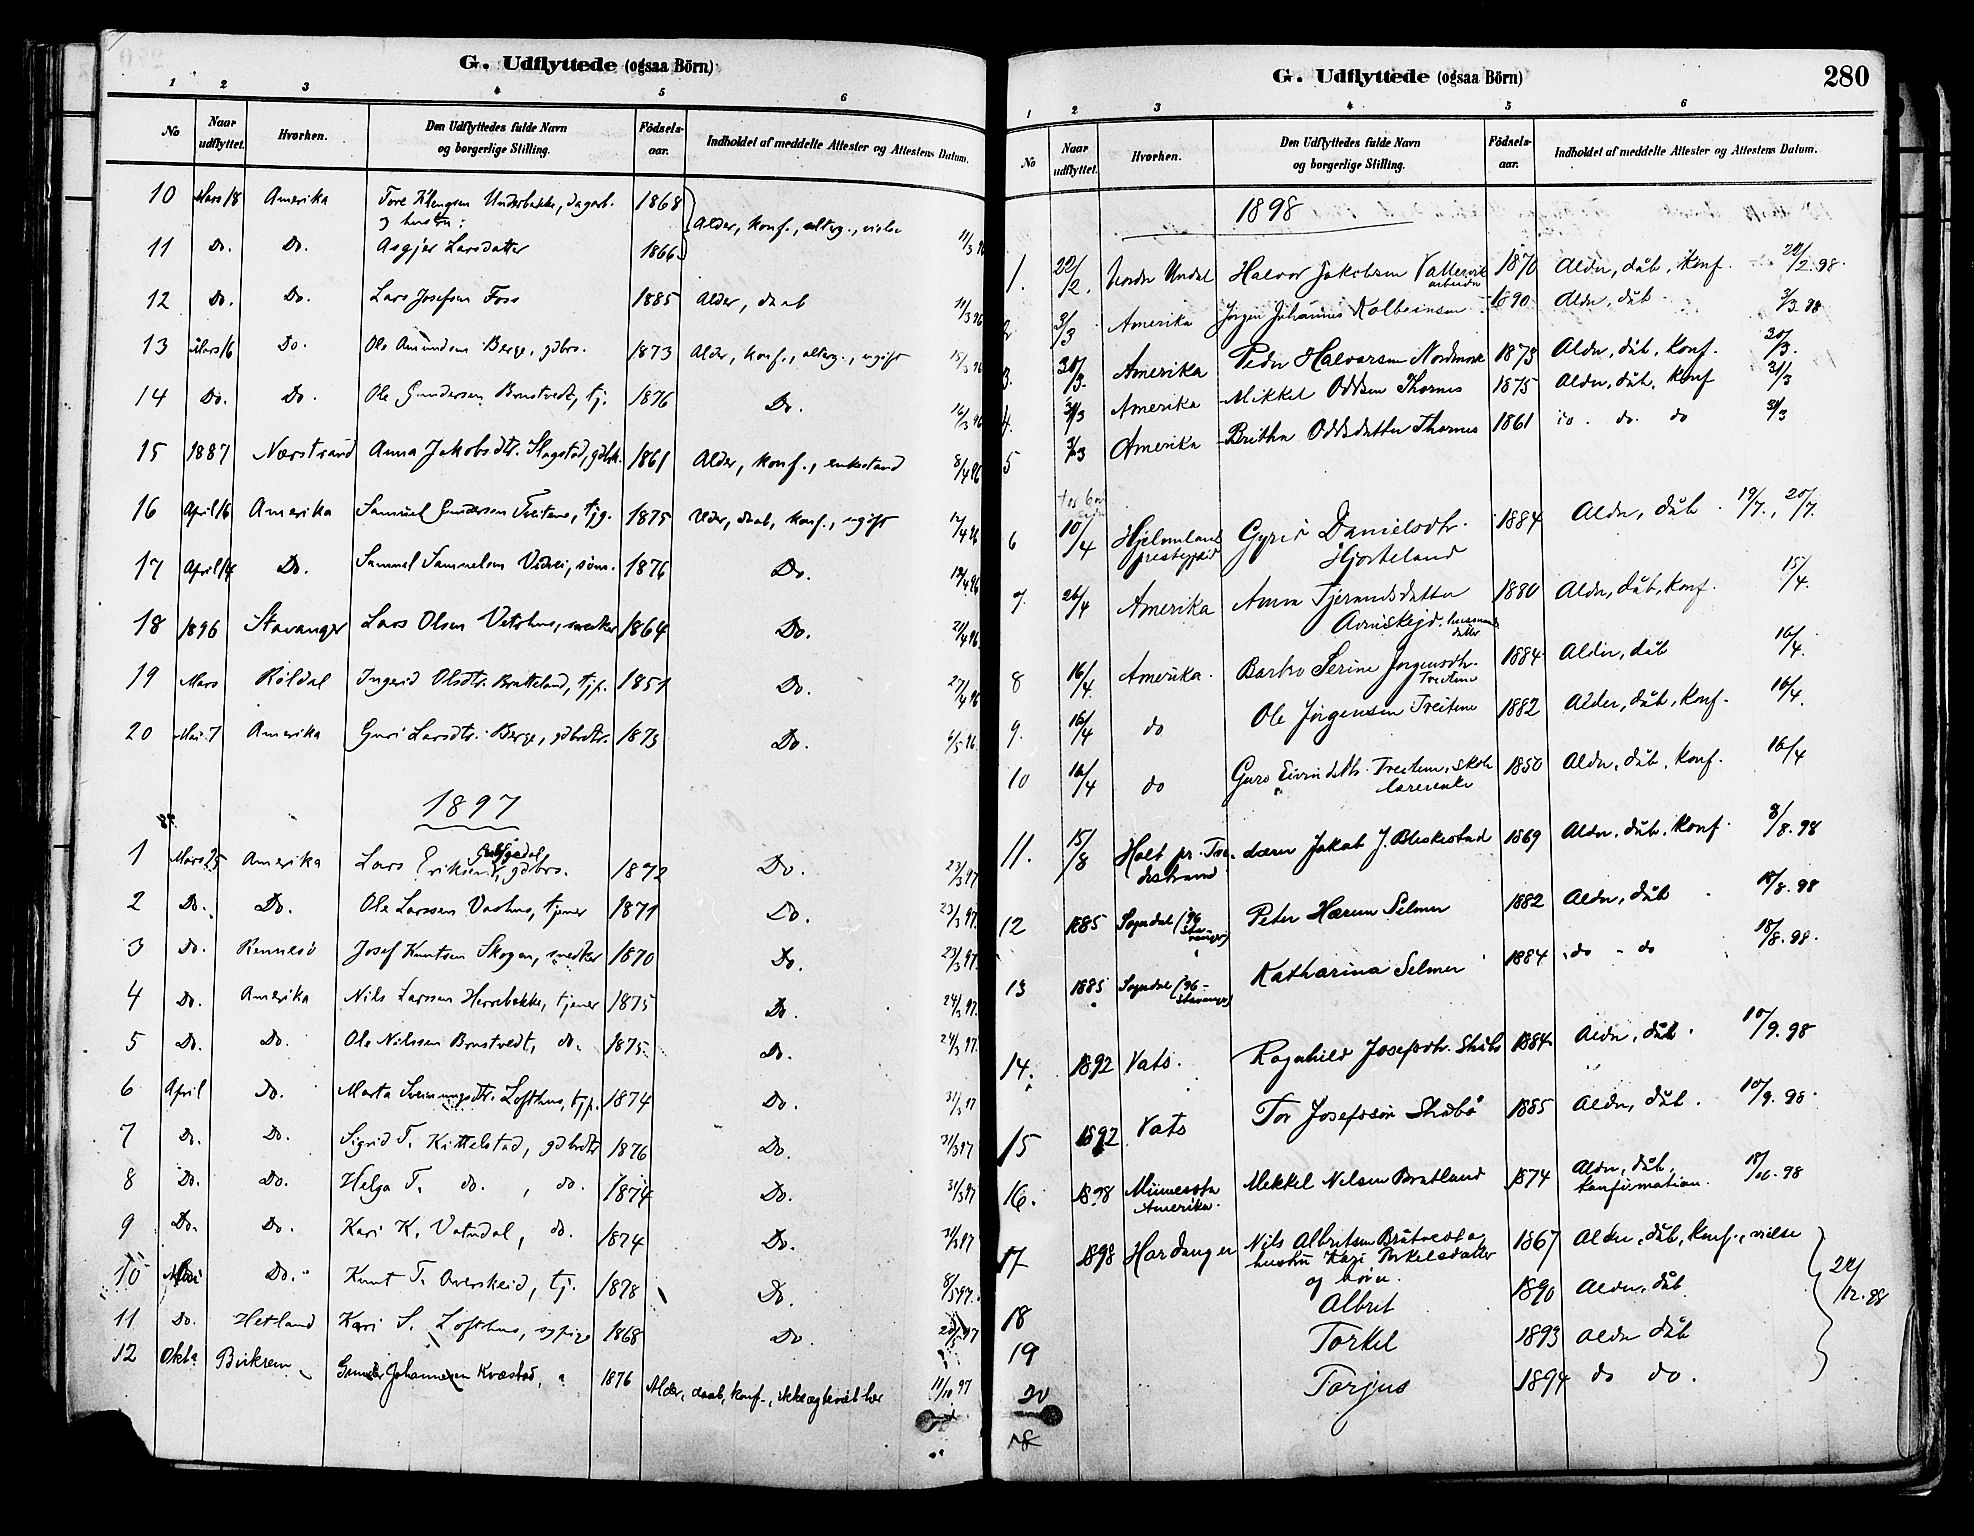 G. Udflyttede (ogsaa Börn)
1 2 3 4 5 6
No Naar udflyttet. Hvorhen. Den Udflyttedes fulde Navn og borgerlige Stilling. Födsels-aar. Indholdet af meddelte Attester og Attestens Datum.
10 Mars 18 Amerika Tore Underbakke, dagarb. 1868 Alder, konf., alterg., vielse 11/3 96
og hustru:
11 Do. Do. Asgjer Larsdatter 1866
12 Do. Do. Lars Josefsen Foss 1885 Alder, daab 11/3 96
13 Mars 16 Do. Ole Amundsen Berge, gdbrs. 1873 Alder, konf., alterg., ugift 15/3 96
14 Do. Do. Ole Gundersen Brustvedt, tj. 1876 Do. 16/3 96
15 1887 Nærstrand Anna Jakobsdtr. Slagstad, 1861 Alder, konf., enkestand 8/4 96
16 April 16 Amerika Samuel Gundersen Treitene, tjg. 1875 Alder, daab, konf., ugift 4 96
17 April 14 Do. Samuel Samuelsen søn. 1876 Do. 4 96
18 1896 Stavanger Lars Olsen Vatshus, snedker 1864 Do. 21/4 96
19 Mars Røldal Ingerid Olsdtr. Bratteland, tjp. 1851 Do. 27/4 96
20 Mai 7 Amerika Guri Larsdtr. Berge, gdbrdtr. 1873 Do. 6/5 96
1897
1 Mars 25 Amerika Lars Eriksen gdbrs. 1872 Do. 23/3 97
2 Do. Do. Ole Larssen Vashus, tjener 1871 Do. 23/3 97
3 Do. Rennesö Josef Knutsen Skogen, snedker 1870 Do. 23/3 97
4 Do. Amerika Nils Larssen Herrebakke, tjener 1875 Do. 24/3 97
5 Do. Do. Ole Nilssen Brustvedt, do. 1875 Do. 24/3 97
6 April Do. Marta Sveinungsdtr. Lofthus, tjp. 1874 Do. 31/3 97
7 Do. Do. Sigrid T. Kittelstad, gdbrdtr 1876 Do. 31/3 97
8 Do. Do. Helga T. do., do. 1874 Do. 31/3 97
9 Do. Do. Kari K. Vatndal, do. 1874 Do. 31/3 97
10 Mai Do. Knut T. Overskeid, tj. 1878 Do. 8/5 97.
11 Do. Hetland Kari S. Lofthus, sypige 1868 Do. 20/5 97
12 Okt. Birkrem Gunder Johannesen Kvæstad, 1876 Alder, daab, konf., ikke ægteviet her 11/10 97
G. Udflyttede (ogsaa Börn) 280
1 2 3 4 5 6
No Naar udflyttet. Hvorhen. Den Udflyttedes fulde Navn og borgerlige Stilling. Födsels-aar. Indholdet af meddelte Attester og Attestens Datum.
1898
1. 22/2. Nordre Undal Halvor Jakobsen Vattersvik 1870 Alder, dåb, konf. 22/2. 98.
arbeider
2 3/3 Amerika Jørgen Johannes Kolbeinsen 1890 Alder, dåb 3/3 98
3. 20/3. Amerika Peder Halvorsen Nordmork 1873 Alder, dåb, konf. 20/3.
4. 31/3 Amerika Mikkel Oddsen Thornes 1875 Alder, dåb, konf 31/3
5 31/3 Amerika Britha Oddsdatter Thornes 1861 do. do. do 31/3
6 10/4 Hjelmeland prestegjeld Gyrid Danielsdtr. 1884 Alder, dåb. 19/7., 20/7.
Hjorteland
7. 26/4 Amerika Anna Tjerandsdatter 1880 Alder, dåb, konf. 15/4.
husmands datter
8 16/4. Amerika. Barbro Serine Jørgensdtr. 1884 Alder, dåb 16/4.
Treitene
9. 16/4 do Ole Jørgensen Treitene 1882 Alder, dåb, konf. 16/4.
10 16/4 do Guro Eivindsdtr. Treitene, skole 1850 Alder, dåb, konf. 16/4
lærerenke
11. 15/8 Holt pr. Tvedestrand lærer Jakob J. Bleskestad 1869 Alder, dåb, konf. 8/8. 98
12 1885 Sogndal (96 Stavanger) Peter Hærem Selmer 1882 Alder, dåb 18/8. 98
13 1885 Sogndal (96 - Stavanger) Katharina Selmer 1884 do - do 18/8. 98.
14. 1892 Vats. Ragnhild Josefsdtr. Skåbø 1884 Alder, dåb. 10/9. 98
15 1892 Vats Tor Josefssøn Skåbø 1885 Alder, dåb. 10/9. 98.
16. 1898 Minnesota Amerika. Mikkel Nilsen Bratland 1874 Alder, dåb, konfirmation. 18/10. 98
17 1898 Hardanger Nils Albritsen Bråtveit og 1867 Alder, dåb, konf., vielse
hustru Kari Torkelsdatter
og børn.
18 Albrit 1890 Alder, dåb 22/12. 98
19 Torkel 1893 Alder dåb
20 Torjus 1894 do do.
18